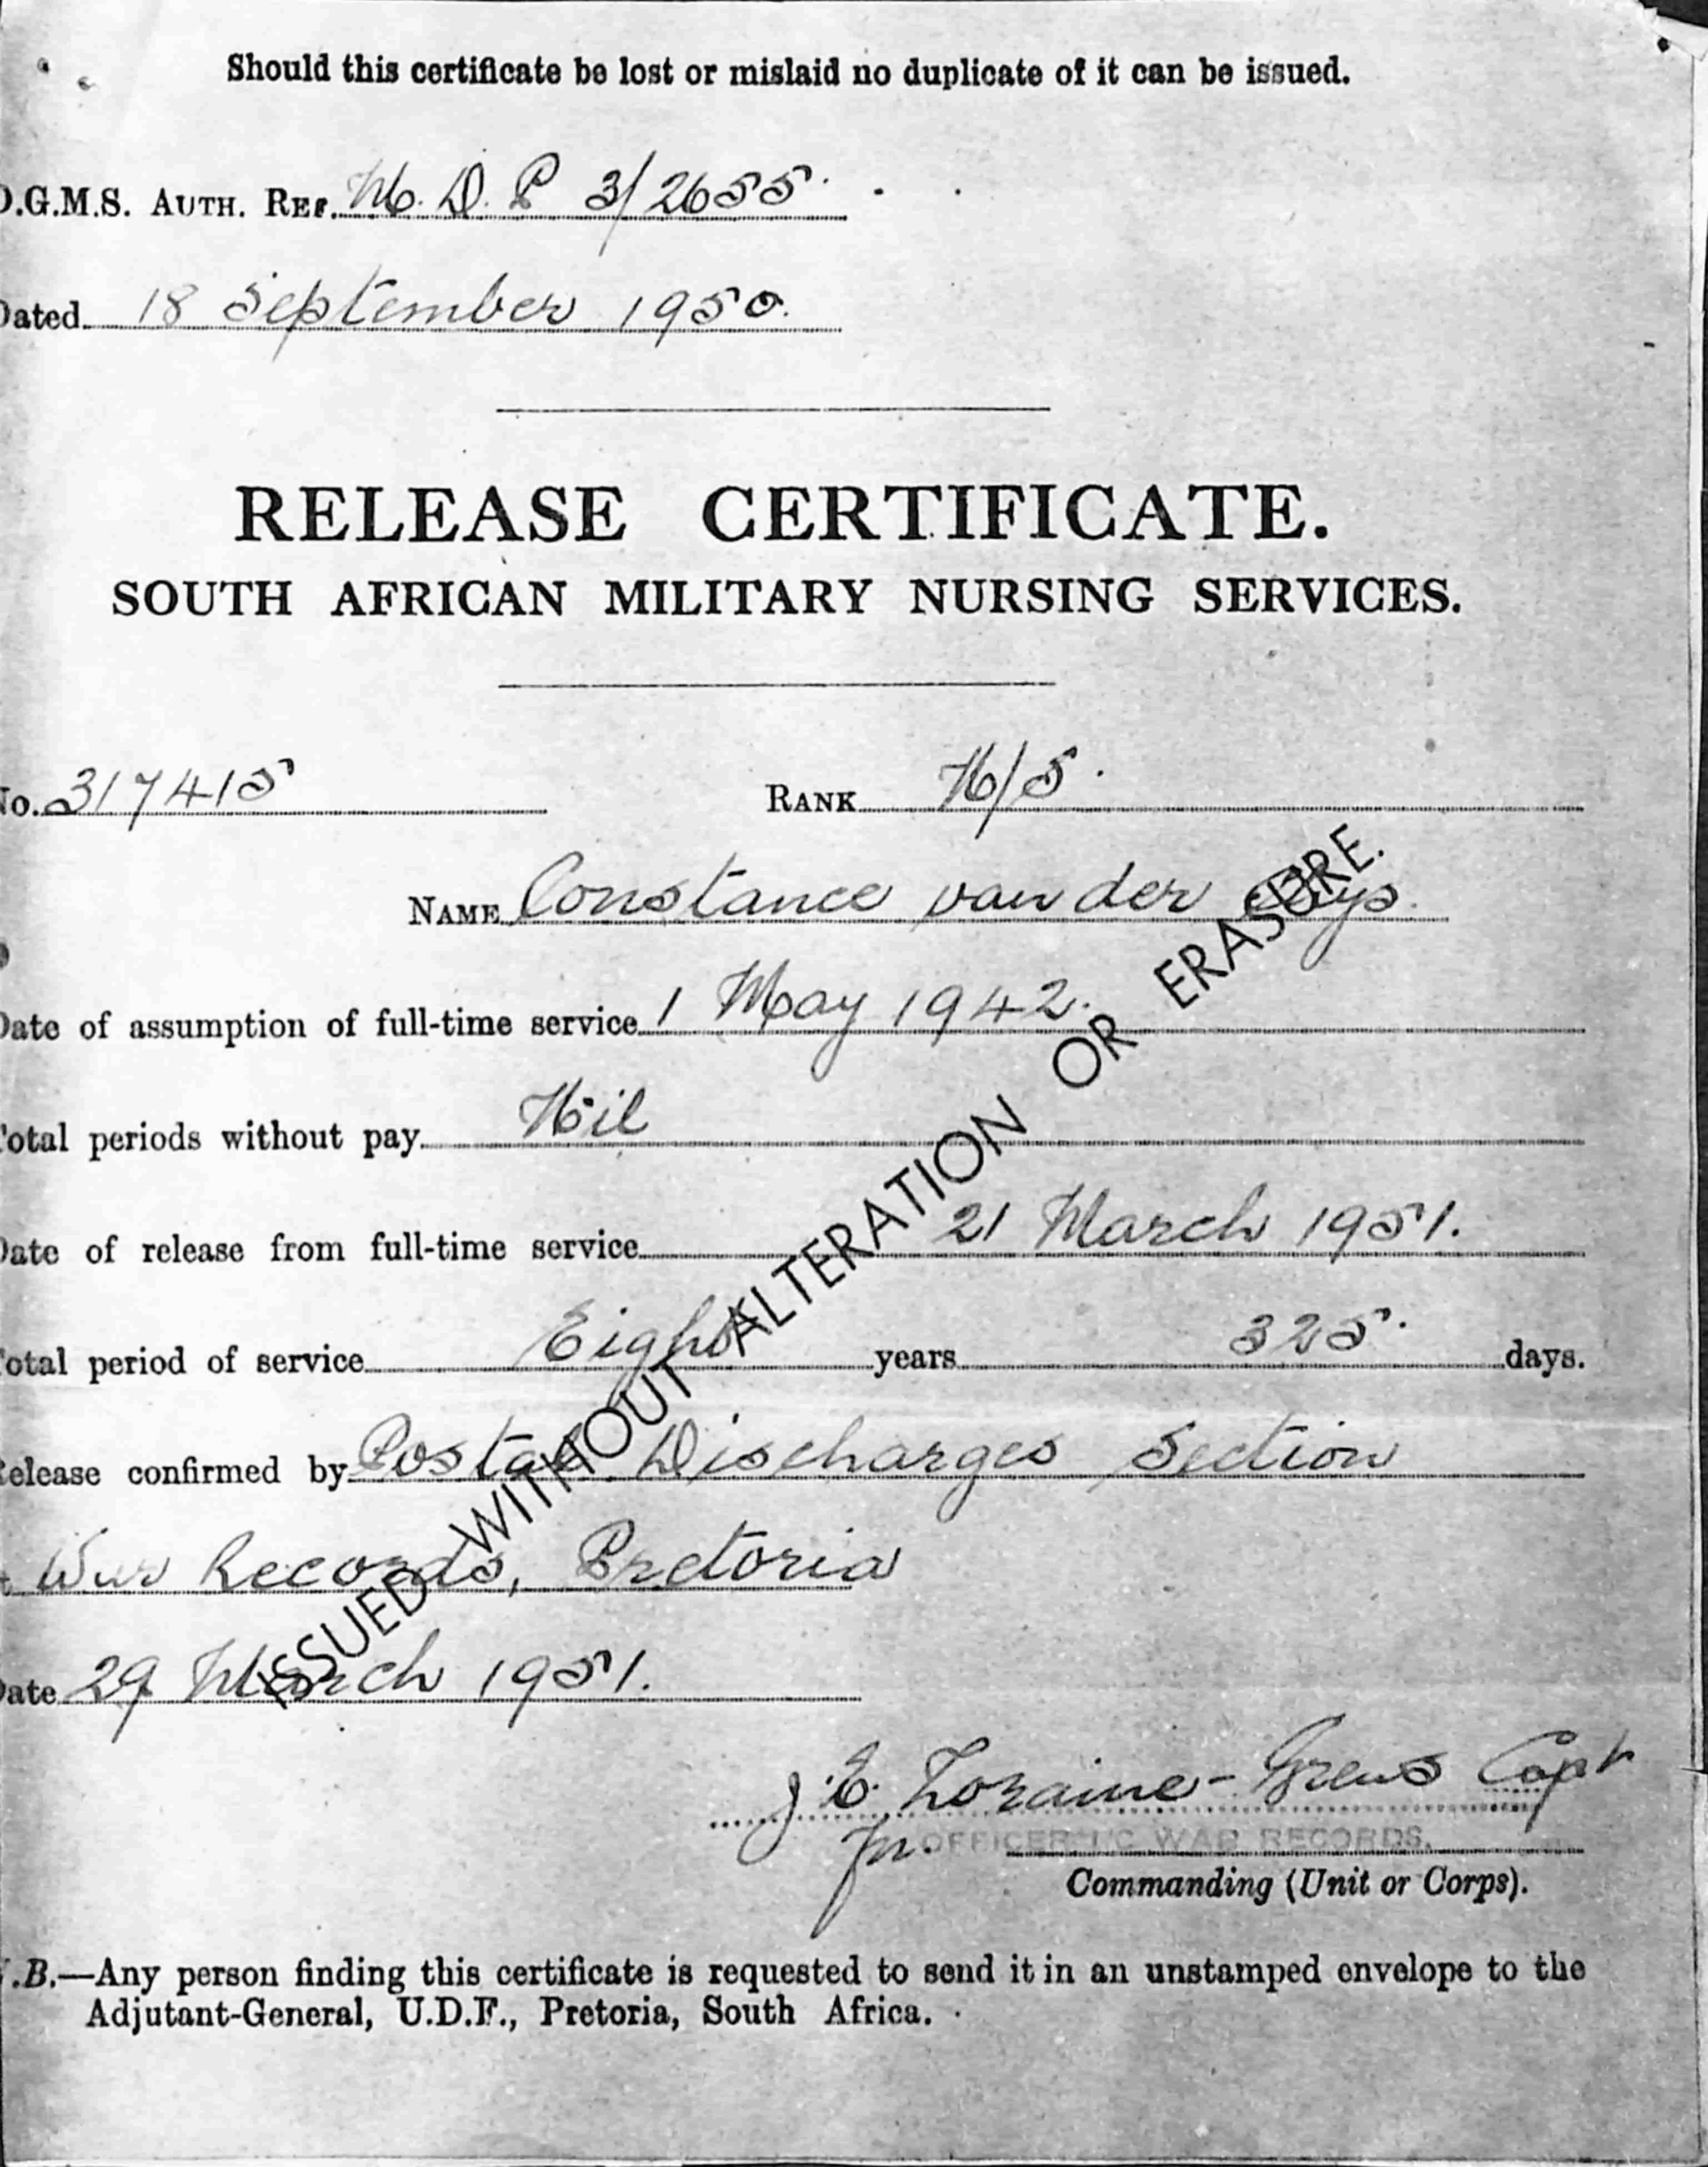 Should this certificate be lost or mislaid no duplicate of it can be issued.
D.G.M.S. AUTH. REF. M. D. P 3/2655.
Dated 18 September 1950.
RELEASE CERTIFICATE.
SOUTH AFRICAN MILITARY NURSING SERVICES.
No. 317415 RANK N/S.
NAME Constance van der
Date of assumption of full-time service 1 May 1942.
Total periods without pay Nil
Date of release from full-time service 21 March 1951.
Total period of service Eight years 325. days.
Release confirmed by Postal Discharges Section
at War Records, Pretoria
Date 29 March 1951.
ISSUED WITHOUT ALTERATION OR ERASURE.
J. E. Loraine-Grews Capt
for OFFICER I/C WAR RECORDS.
Commanding (Unit or Corps).
N.B.—Any person finding this certificate is requested to send it in an unstamped envelope to the
Adjutant-General, U.D.F., Pretoria, South Africa.